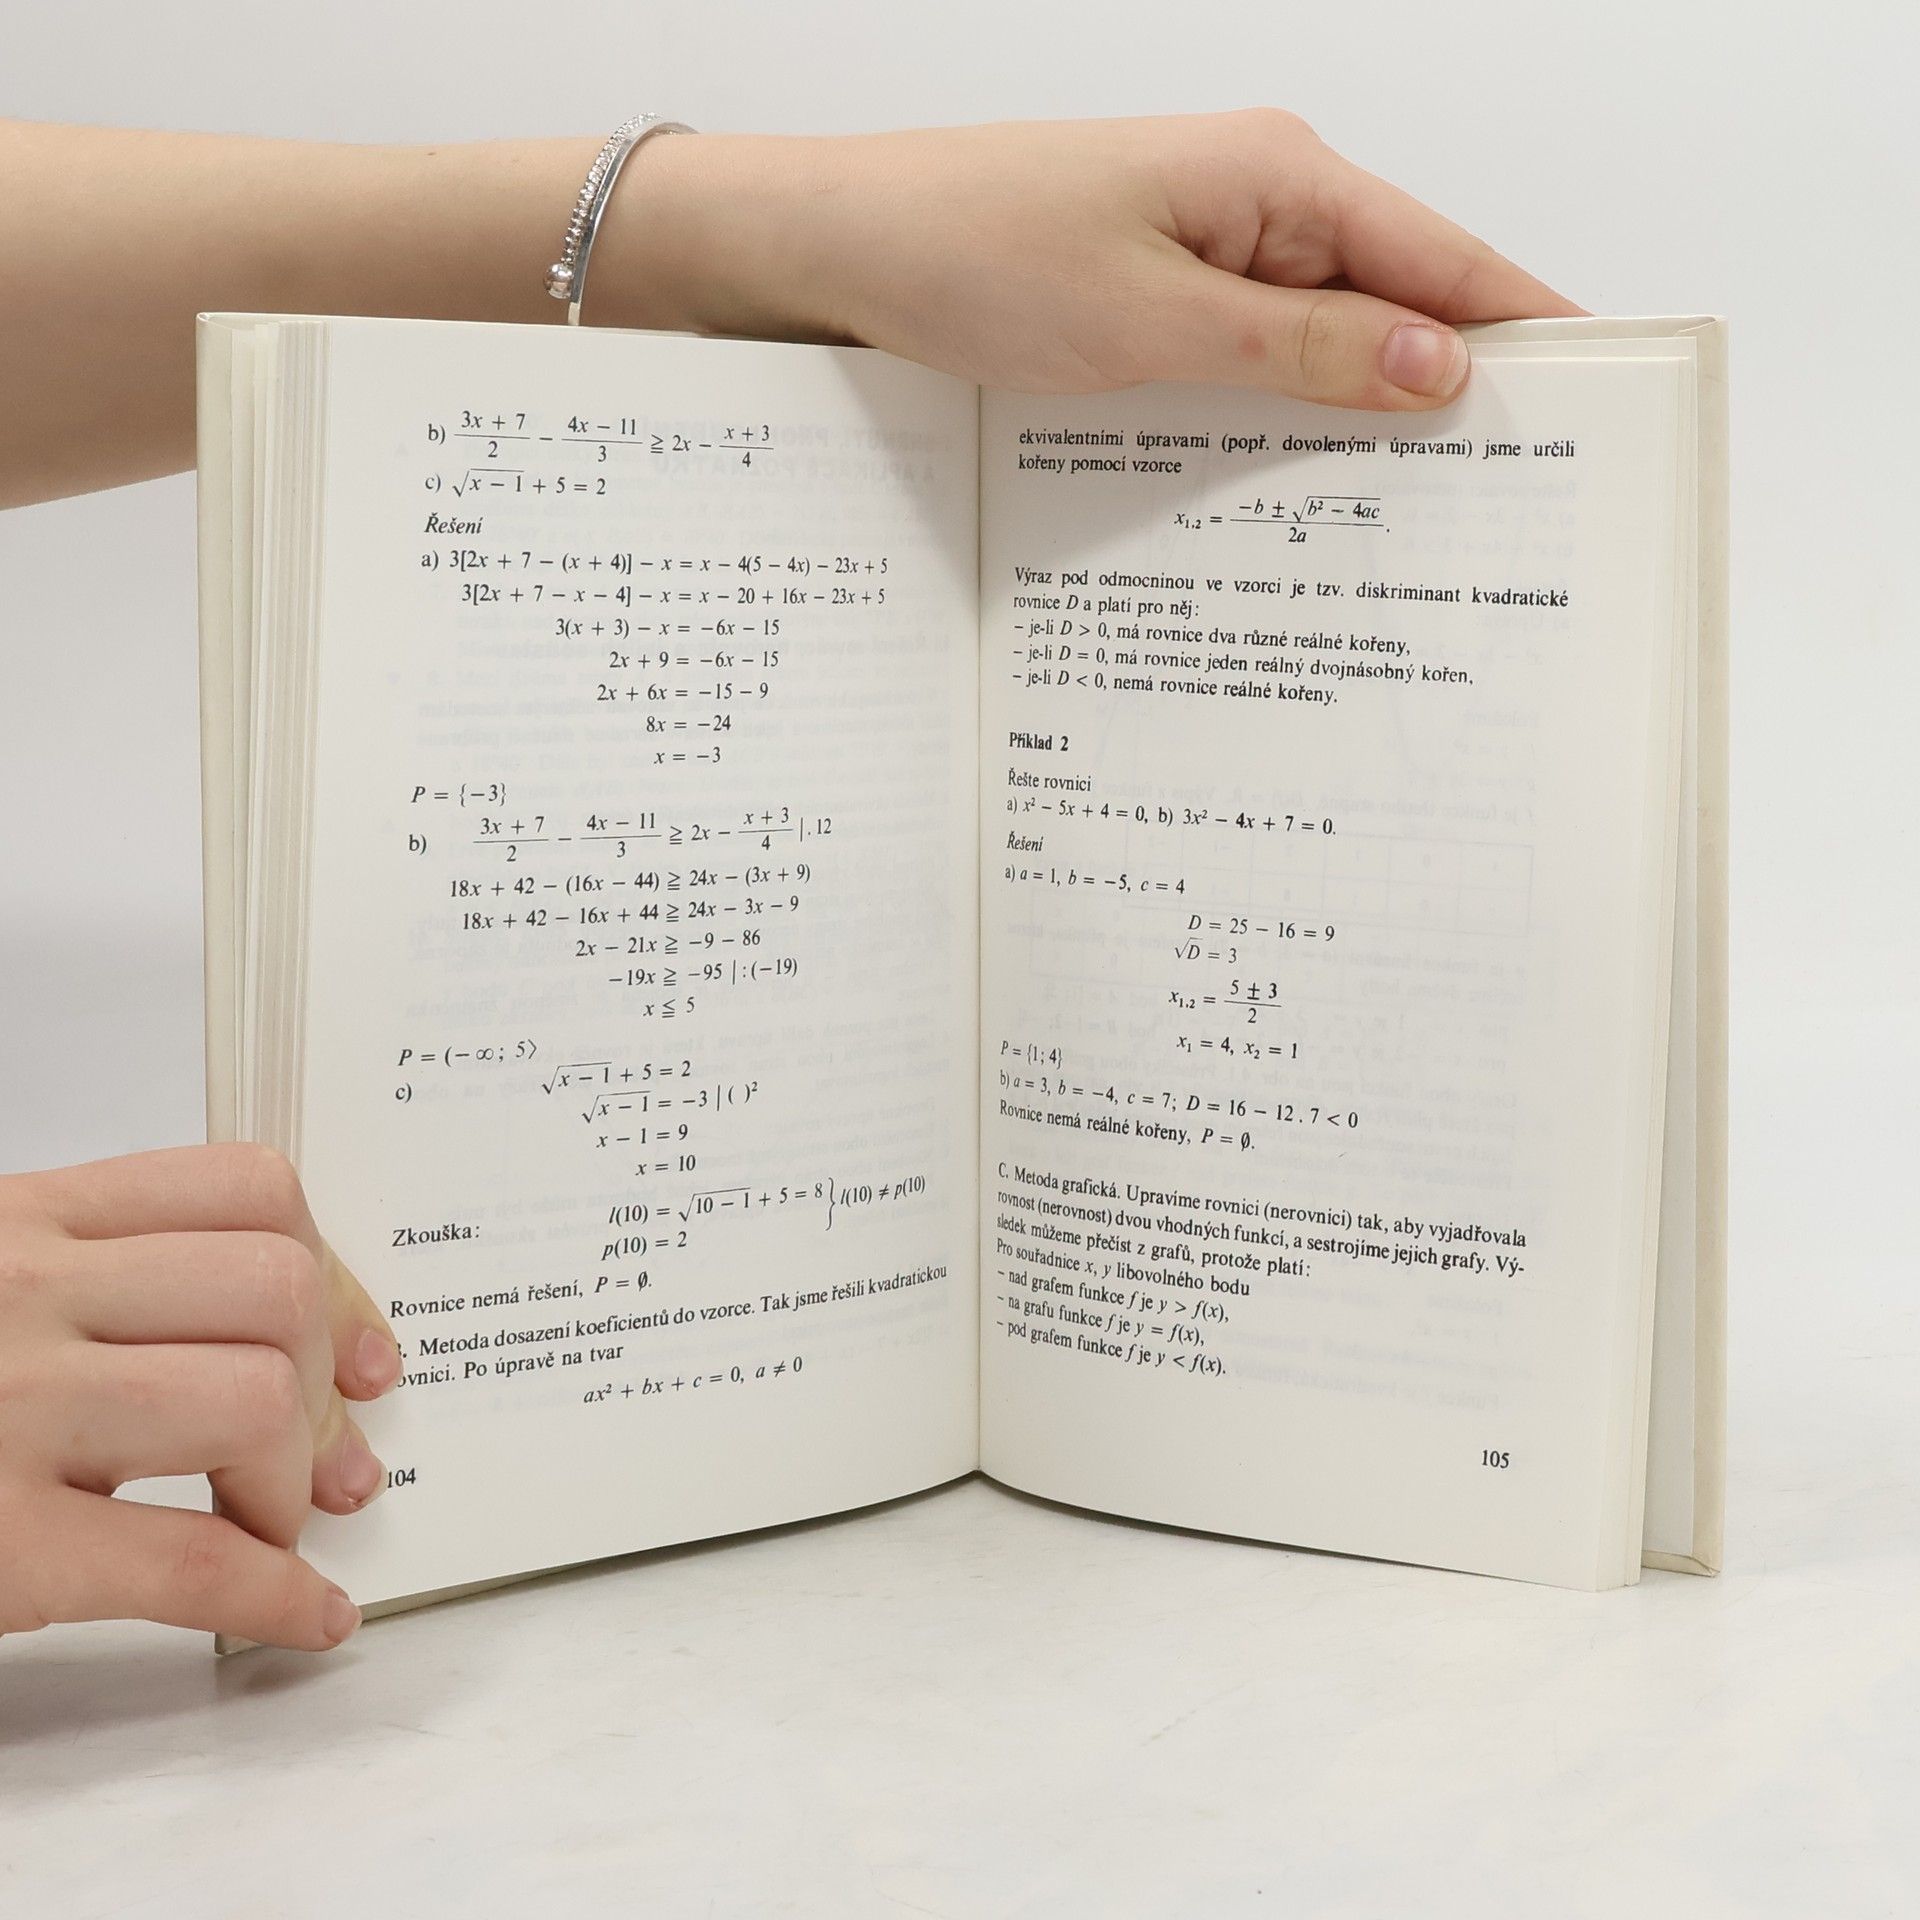 b) (3x + 7)/2 − (4x − 11)/3 ≧ 2x − (x + 3)/4
c) √(x − 1) + 5 = 2
Řešení
a) 3[2x + 7 − (x + 4)] − x = x − 4(5 − 4x) − 23x + 5
3[2x + 7 − x − 4] − x = x − 20 + 16x − 23x + 5
3(x + 3) − x = −6x − 15
2x + 9 = −6x − 15
2x + 6x = −15 − 9
8x = −24
x = −3
P = {−3}
b) (3x + 7)/2 − (4x − 11)/3 ≧ 2x − (x + 3)/4 |. 12
18x + 42 − (16x − 44) ≧ 24x − (3x + 9)
18x + 42 − 16x + 44 ≧ 24x − 3x − 9
2x − 21x ≧ −9 − 86
−19x ≧ −95 | :(−19)
x ≦ 5
P = (− ∞; 5⟩
c) √(x − 1) + 5 = 2
√(x − 1) = −3 | ( )²
x − 1 = 9
x = 10
Zkouška: l(10) = √(10 − 1) + 5 = 8 } l(10) ≠ p(10)
p(10) = 2
Rovnice nemá řešení, P = ∅.
. Metoda dosazení koeficientů do vzorce. Tak jsme řešili kvadratickou
ovnici. Po úpravě na tvar
ax² + bx + c = 0, a ≠ 0
104
ekvivalentními úpravami (popř. dovolenými úpravami) jsme určili
kořeny pomocí vzorce
x₁,₂ = (−b ± √(b² − 4ac))/2a.
Výraz pod odmocninou ve vzorci je tzv. diskriminant kvadratické
rovnice D a platí pro něj:
– je-li D > 0, má rovnice dva různé reálné kořeny,
– je-li D = 0, má rovnice jeden reálný dvojnásobný kořen,
– je-li D < 0, nemá rovnice reálné kořeny.
Příklad 2
Řešte rovnici
a) x² − 5x + 4 = 0, b) 3x² − 4x + 7 = 0.
Řešení
a) a = 1, b = −5, c = 4
D = 25 − 16 = 9
√D = 3
x₁,₂ = (5 ± 3)/2
x₁ = 4, x₂ = 1
P = {1; 4}
b) a = 3, b = −4, c = 7; D = 16 − 12 . 7 < 0
Rovnice nemá reálné kořeny, P = ∅.
C. Metoda grafická. Upravíme rovnici (nerovnici) tak, aby vyjadřovala
rovnost (nerovnost) dvou vhodných funkcí, a sestrojíme jejich grafy. Vý-
sledek můžeme přečíst z grafů, protože platí:
Pro souřadnice x, y libovolného bodu
– nad grafem funkce f je y > f(x),
– na grafu funkce f je y = f(x),
– pod grafem funkce f je y < f(x).
105